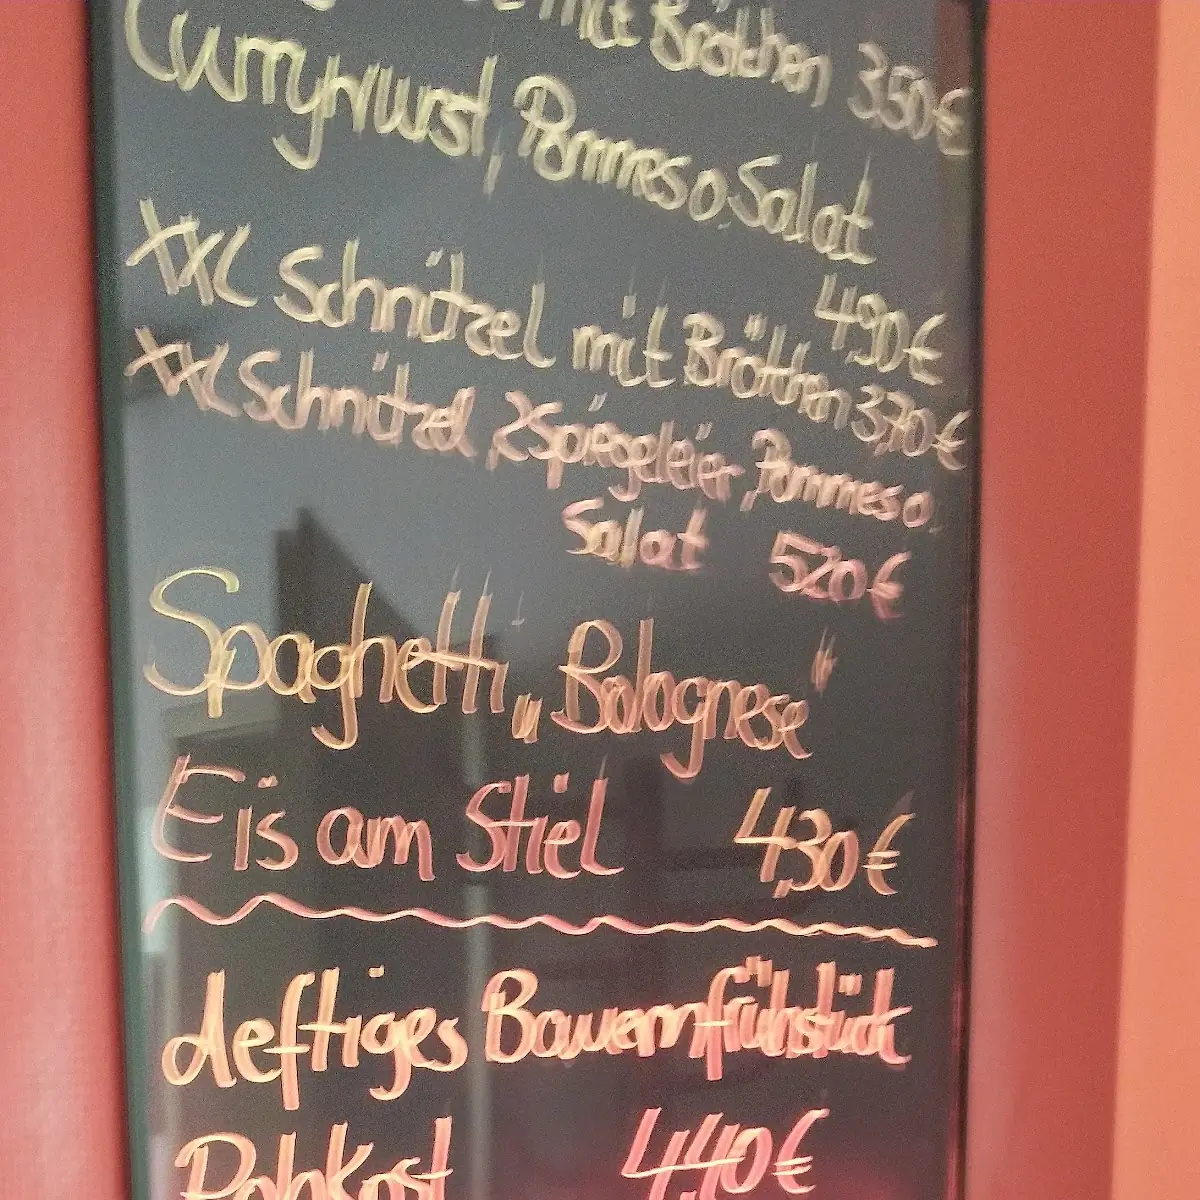 mit Brötchen 3,50€
Currywurst, Pommes o. Salat
4,90€
XXL Schnitzel mit Brötchen 3,70€
XXL Schnitzel, 2 Spiegeleier, Pommes o.
Salat 5,20€
Spaghetti „Bolognese"
Eis am Stiel 4,30€
deftiges Bauernfrühstück
Rohkost 4,40€